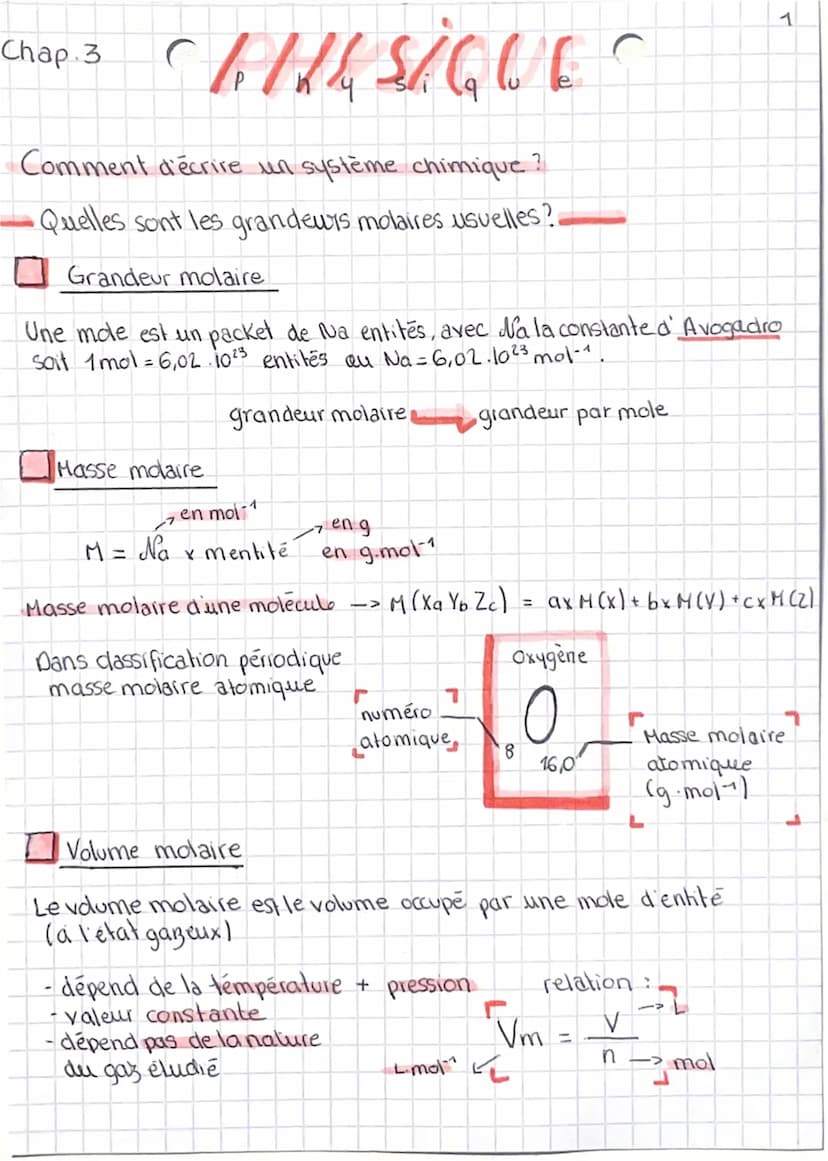 1
Chap.3
PHYSIQUE
Physique
Comment d'écrire un système chimique ?
Quelles sont les grandeurs molaires usuelles?
Grandeur molaire
Une mole est un packet de Na entités, avec Na la constante d'Avogadro
soit 1mol = 6,02.10²³ entités ou Na = 6,02.10²³ mol⁻¹.
grandeur molaire → grandeur par mole
Masse molaire
→ en mol⁻¹
→ en g
M = Na x mentité en g.mol⁻¹
Masse molaire d'une molécule -> M(Xa Yb Zc) = axM(X) + bxM(Y) + cxM(Z)
Dans classification périodique
masse molaire atomique
Oxygène
O
8
16,0
numéro
atomique
Masse molaire
atomique
(g.mol⁻¹)
Volume molaire
Le volume molaire est le volume occupé par une mole d'entité
(à l'état gazeux)
- dépend de la température + pression
- valeur constante
- dépend pas de la nature
du gaz étudié
relation :
Vm = V / n
-> L
-> mol
L.mol⁻¹